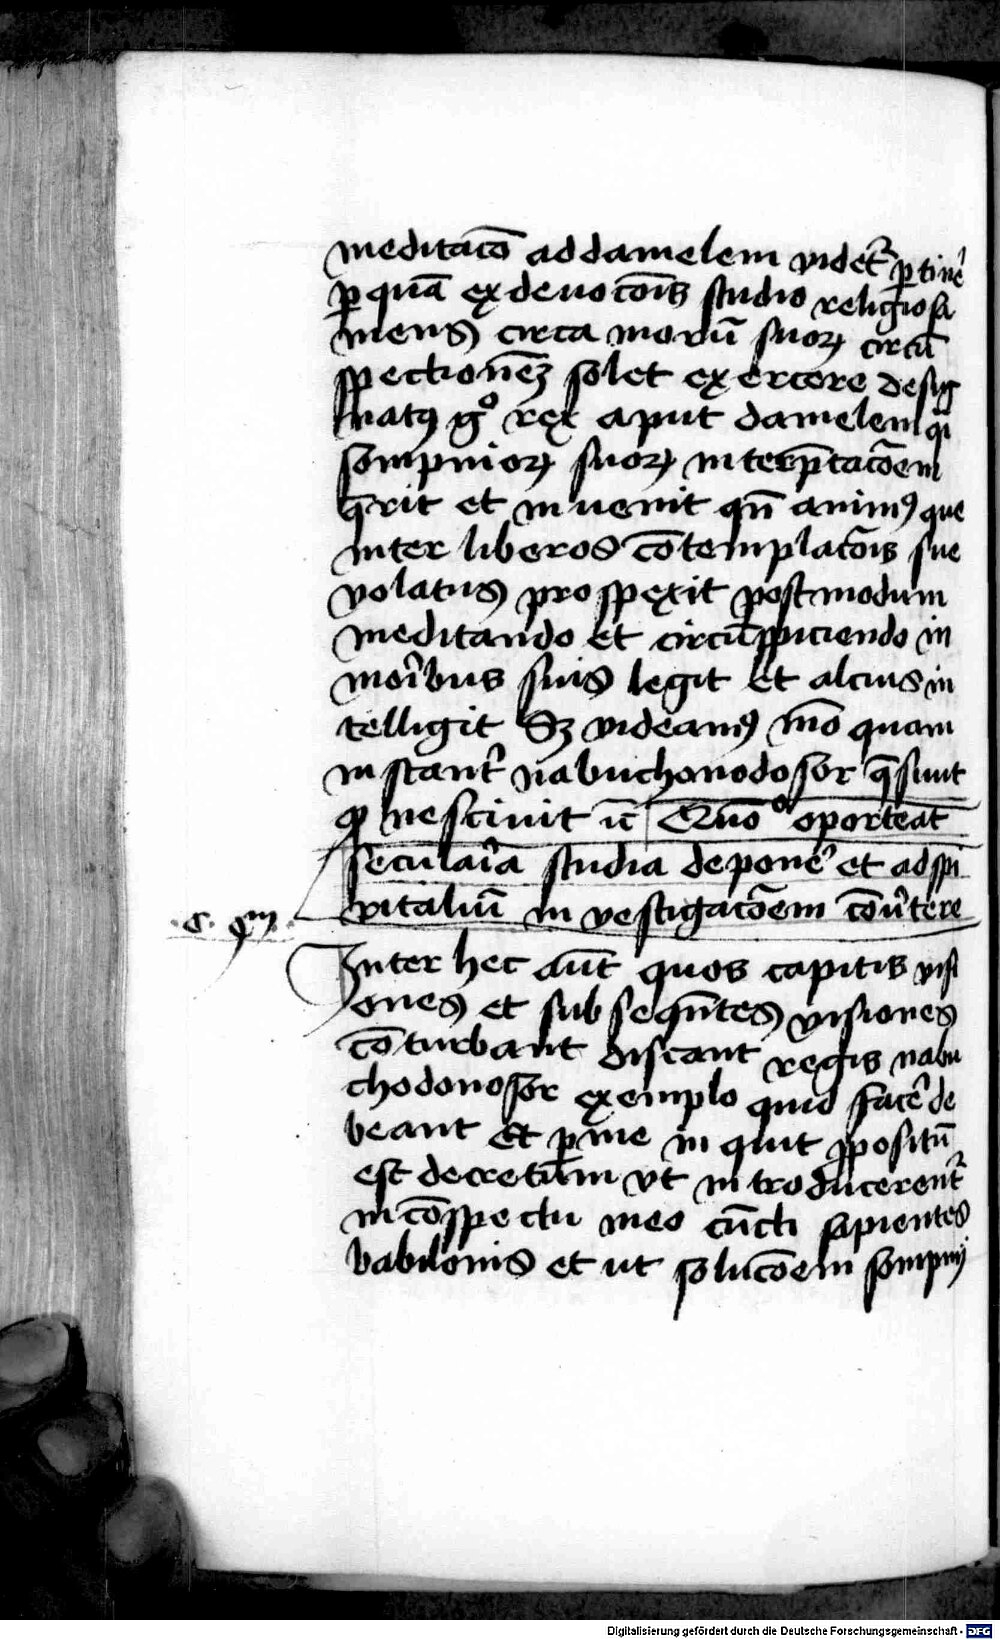 meditac̄o ad danielem videt᷑ ꝑtine᷑
ꝑ quā ex deuoc̄ois studio religiosa
mens circa morū suoꝝ circū
spectionēꝫ solet exercere desig
natꝰ gͦ rex aput danielem qͥ
sompnioꝝ suoꝝ interp̄tac̄oem
q̄rit et inuenit qn̄ animꝰ que
inter liberos cōtemplac̄ois sue
volatus prospexit postmodum
meditando et circūspiciendo in
mor᷑ibus suis legit et alcius in
telligit Sꝫ videamꝰ mō quam
instant᷑ nabuchonodosor q̄sunt
ꝙ nesciuit uc̄ Quōº oporteat
secular᷑ia studia depone᷑ et ad spi
ritaliū in vestigac̄oem cōu᷑tere
.C. qͫ.
Inter hec aūt quos capitis visi
ones et subseqn̄tes visiones
cōturbant discant regis nabu
chodonosor exemplo quid face᷑ de
beant Et ꝑ me inquit ꝓpositū
est decretum vt introducerent᷑
in cōspectu meo cūcti sapientes
babilonis et ut soluc̄oem sompnij
Digitalisierung gefördert durch die Deutsche Forschungsgemeinschaft - DFG